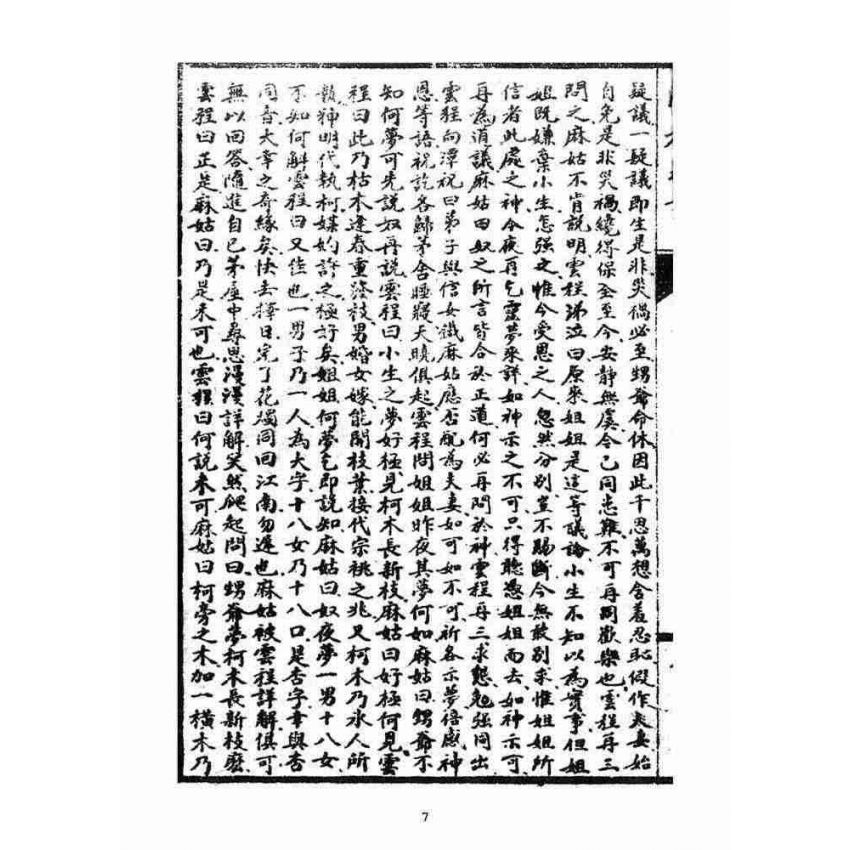 疑議一疑議即生是非災禍必至甥爺命休因此千思萬想含羞忍恥假作夫妻始
自免是非災禍纔得保全至今安靜無虞今已同患難不可再同歡樂也雲程再三
問之麻姑不肯說明雲程涕泣曰原來姐姐是這等議論小生不知以為實事但姐
姐既嫌棄小生怎强之惟今受恩之人忽然分別豈不腸斷今無敢別求惟姐姐所
信者此處之神今夜再乞靈夢來詳如神示之不可只得聽憑姐姐而去如神示可
再為道議麻姑曰奴之所言皆合於正道何必再問於神雲程再三求懇勉强同出
雲程向潭祝曰弟子與信女鐵麻姑應否配為夫妻如可如不可祈各示夢倍感神
恩等語祝訖各歸茅舍睡寢天曉俱起雲程問姐姐昨夜其夢何如麻姑曰甥爺不
知何夢可先說奴再說雲程曰小生之夢好極見柯木長新枝麻姑曰好極何見雲
程曰此乃枯木逢春重發枝男婚女嫁能開枝葉接代宗祧之兆又柯木乃氷人所
賴神明代執柯媒妁許之極好矣姐姐何夢乞即說知麻姑曰奴夜夢一男十八女
不知何解雲程曰又佳也一男子乃一人為大字十八女乃十八口是杏字幸與杏
同音大幸之奇緣矣快去擇日完了花燭同回江南勿遲也麻姑被雲程詳解俱可
無以回答隨進自已茅廬中尋思漫漫詳解笑然爬起問曰甥爺夢柯木長新枝麼
雲程曰正是麻姑曰乃是未可也雲程曰何說未可麻姑曰柯旁之木加一橫木乃
7